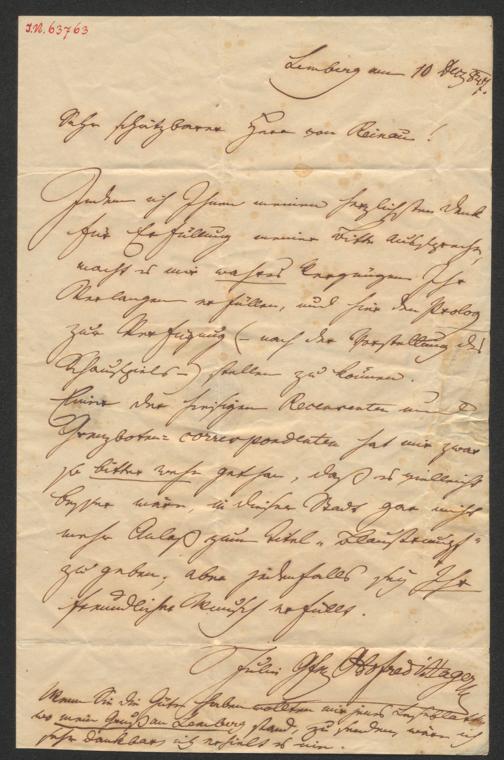 J.N. 63763
Lemberg am 10 Dez 847.
Sehr schätzbarer Herr von Reinau!
Indem ich Ihnen meinen herzlichsten Dank
für Erfüllung meiner Bitte ausspreche,
macht es mir wahres Vergnügen Ihr
Verlangen erfüllen, und hier den Prolog
zur Verfügung (- nach der Vorstellung des
Schauspiels -) stellen zu können.
Einer der hiesigen Recensenten und
Grenzboten= correspondenten hat mir zwar
so bitter wehe gethan, daß es vielleicht
besser wäre, in dieser Stadt gar nicht
mehr Anlaß zum Titel „Blaustrumpf"
zu geben, aber jedenfalls sey Ihr
freundlicher Wunsch erfüllt.
Julie
Wenn Sie die Güte haben wollten mir jenes
wo mein Gruß an Lemberg stand, zu senden, wäre ich
sehr dankbar, ich erhielt es nie.